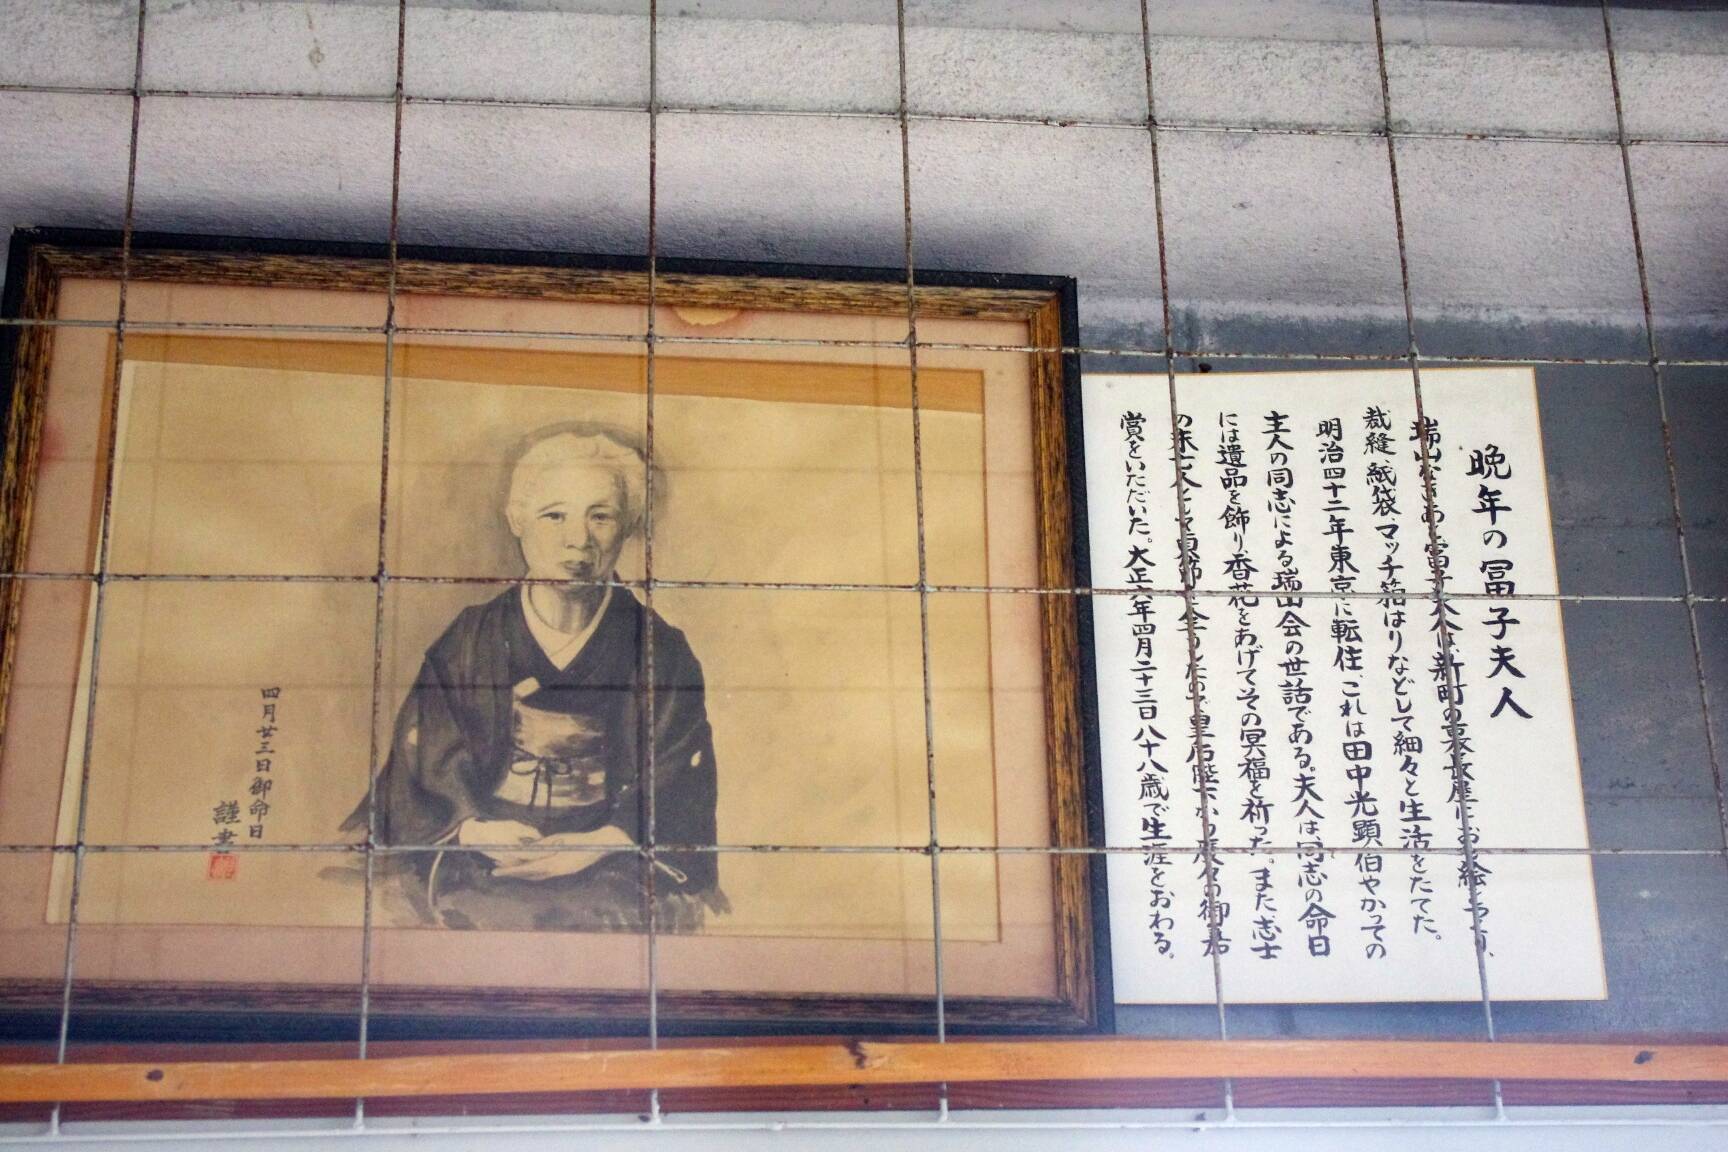 晩年の冨子夫人
瑞山なきあと冨子夫人は、新町の裏長屋にお
裁縫、紙袋、マッチ箱はりなどして細々と生活をたてた。
明治四十二年東京に転住、これは田中光顕伯やかっての
主人の同志による瑞山会の世話である。夫人は同志の命日
には遺品を飾り、香花をあげてその冥福を祈った。また志士
の未亡人として貞節を全うしたので皇后陛下から度々の御嘉
賞をいただいた。大正六年四月二十三日八十八歳で生涯をおわる。
四月廿三日御命日
謹畫